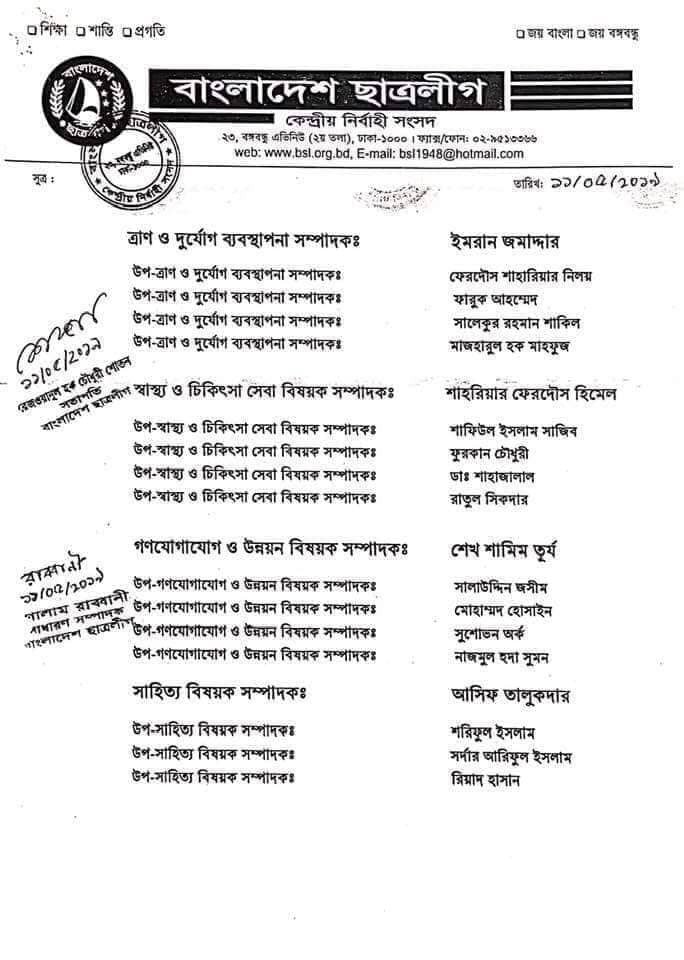 শিক্ষা শান্তি প্রগতি
জয় বাংলা জয় বঙ্গবন্ধু
বাংলাদেশ ছাত্রলীগ
বাংলাদেশ ছাত্রলীগ
কেন্দ্রীয় নির্বাহী সংসদ
২৩, বঙ্গবন্ধু এভিনিউ (২য় তলা), ঢাকা-১০০০ । ফ্যাক্স/ফোন: ০২-৯৫১৩৩৬৬
web: www.bsl.org.bd, E-mail: bsl1948@hotmail.com
সূত্র :
তারিখ: ১১/০৫/২০১৯
ত্রাণ ও দুর্যোগ ব্যবস্থাপনা সম্পাদকঃ ইমরান জমাদ্দার
উপ-ত্রাণ ও দুর্যোগ ব্যবস্থাপনা সম্পাদকঃ ফেরদৌস শাহারিয়ার নিলয়
উপ-ত্রাণ ও দুর্যোগ ব্যবস্থাপনা সম্পাদকঃ ফারুক আহম্মেদ
উপ-ত্রাণ ও দুর্যোগ ব্যবস্থাপনা সম্পাদকঃ সালেকুর রহমান শাকিল
উপ-ত্রাণ ও দুর্যোগ ব্যবস্থাপনা সম্পাদকঃ মাজহারুল হক মাহফুজ
১১/০৫/২০১৯
রেজওয়ানুল হক চৌধুরী শোভন
সভাপতি
বাংলাদেশ ছাত্রলীগ
স্বাস্থ্য ও চিকিৎসা সেবা বিষয়ক সম্পাদকঃ শাহরিয়ার ফেরদৌস হিমেল
উপ-স্বাস্থ্য ও চিকিৎসা সেবা বিষয়ক সম্পাদকঃ শাফিউল ইসলাম সাজিব
উপ-স্বাস্থ্য ও চিকিৎসা সেবা বিষয়ক সম্পাদকঃ ফুরকান চৌধুরী
উপ-স্বাস্থ্য ও চিকিৎসা সেবা বিষয়ক সম্পাদকঃ ডাঃ শাহাজালাল
উপ-স্বাস্থ্য ও চিকিৎসা সেবা বিষয়ক সম্পাদকঃ রাতুল সিকদার
গণযোগাযোগ ও উন্নয়ন বিষয়ক সম্পাদকঃ শেখ শামিম তূর্য
রাব্বানী
১১/০৫/২০১৯
গোলাম রাব্বানী
সাধারণ সম্পাদক
বাংলাদেশ ছাত্রলীগ
উপ-গণযোগাযোগ ও উন্নয়ন বিষয়ক সম্পাদকঃ সালাউদ্দিন জসীম
উপ-গণযোগাযোগ ও উন্নয়ন বিষয়ক সম্পাদকঃ মোহাম্মদ হোসাইন
উপ-গণযোগাযোগ ও উন্নয়ন বিষয়ক সম্পাদকঃ সুশোভন অর্ক
উপ-গণযোগাযোগ ও উন্নয়ন বিষয়ক সম্পাদকঃ নাজমুল হুদা সুমন
সাহিত্য বিষয়ক সম্পাদকঃ আসিফ তালুকদার
উপ-সাহিত্য বিষয়ক সম্পাদকঃ শরিফুল ইসলাম
উপ-সাহিত্য বিষয়ক সম্পাদকঃ সর্দার আরিফুল ইসলাম
উপ-সাহিত্য বিষয়ক সম্পাদকঃ রিয়াদ হাসান